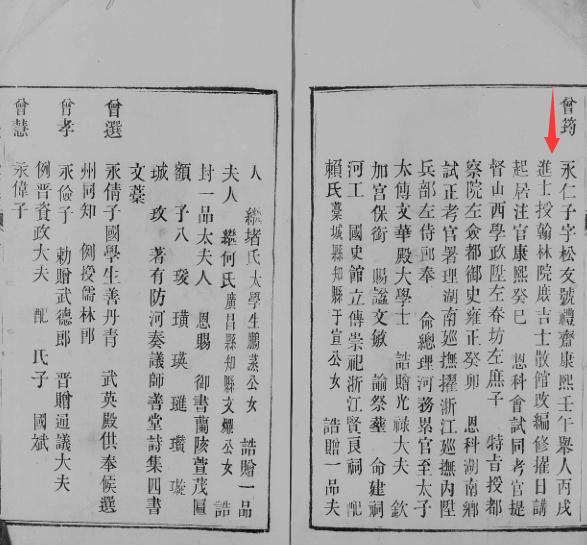 曾筠
永仁子字松友號禮齋康熙壬午舉人丙戌
進士授翰林院庶吉士散館改編修擢日講
起居注官康熙癸巳 恩科會試同考官提
督山西學政陞左春坊左庶子 特旨授都
察院左僉都御史雍正癸卯 恩科湖南鄉
試正考官署理湖南巡撫擢浙江巡撫內陞
兵部左侍郎奉 命總理河務累官至太子
太傅文華殿大學士 誥贈光祿大夫 欽
加宮保銜 賜諡文敏 諭祭塟 命建祠
河工 國史館立傳崇祀浙江賢良祠 配
賴氏藁城縣知縣于宣公女 誥贈一品夫
人 繼堵氏太學生鵬蒸公女 誥贈一品
夫人 繼何氏廣昌縣知縣文公女 誥
封一品太夫人 恩賜 御書蘭陔萱茂匾
額 子八 璜 瑛 璡 瓚 璇
瑊 玫 著有防河奏議師善堂詩集四書
文藁
曾選
永倩子國學生善丹青 武英殿供奉候選
州同知 例授儒林郎
曾孝
永儉子 勅贈武德郎 晉贈通議大夫
例晉資政大夫 配 氏子 國斌
曾慧
永偉子